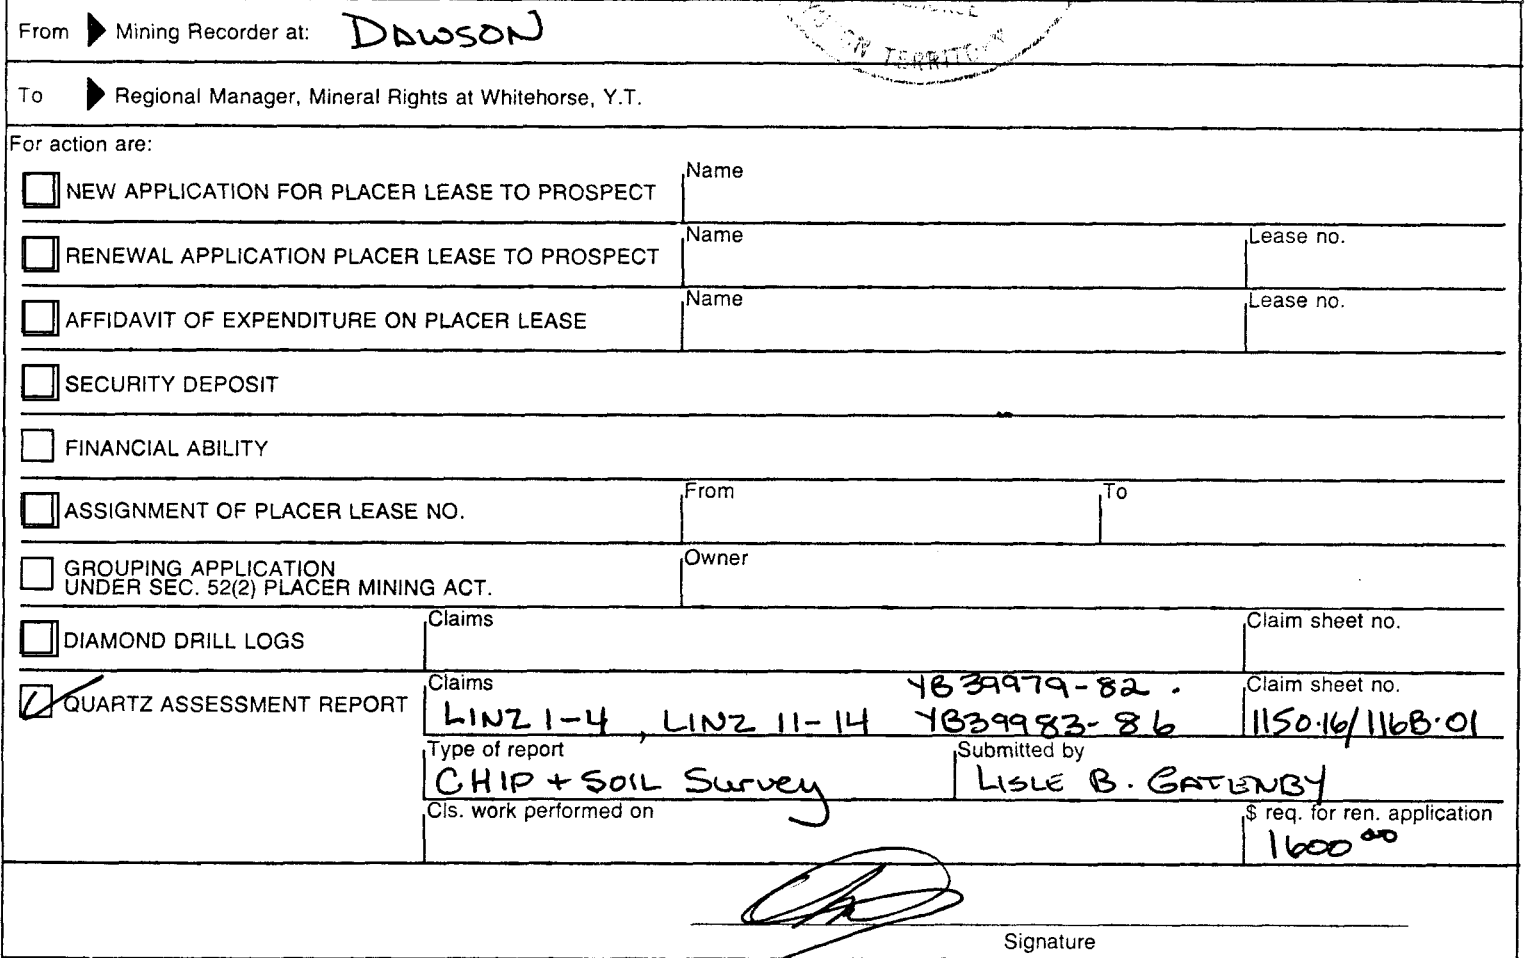 From Mining Recorder at: DAWSON
TERRITO
To Regional Manager, Mineral Rights at Whitehorse, Y.T.
For action are:
NEW APPLICATION FOR PLACER LEASE TO PROSPECT Name
RENEWAL APPLICATION PLACER LEASE TO PROSPECT Name Lease no.
AFFIDAVIT OF EXPENDITURE ON PLACER LEASE Name Lease no.
SECURITY DEPOSIT
FINANCIAL ABILITY
ASSIGNMENT OF PLACER LEASE NO. From To
GROUPING APPLICATION Owner
UNDER SEC. 52(2) PLACER MINING ACT.
DIAMOND DRILL LOGS Claims Claim sheet no.
Claims YB39979-82. Claim sheet no.
QUARTZ ASSESSMENT REPORT LINZ 1-4, LINZ 11-14 YB39983-86 115O·16/116B·01
Type of report Submitted by
CHIP + SOIL Survey LISLE B. GATENBY
Cls. work performed on $ req. for ren. application
1600 00
Signature